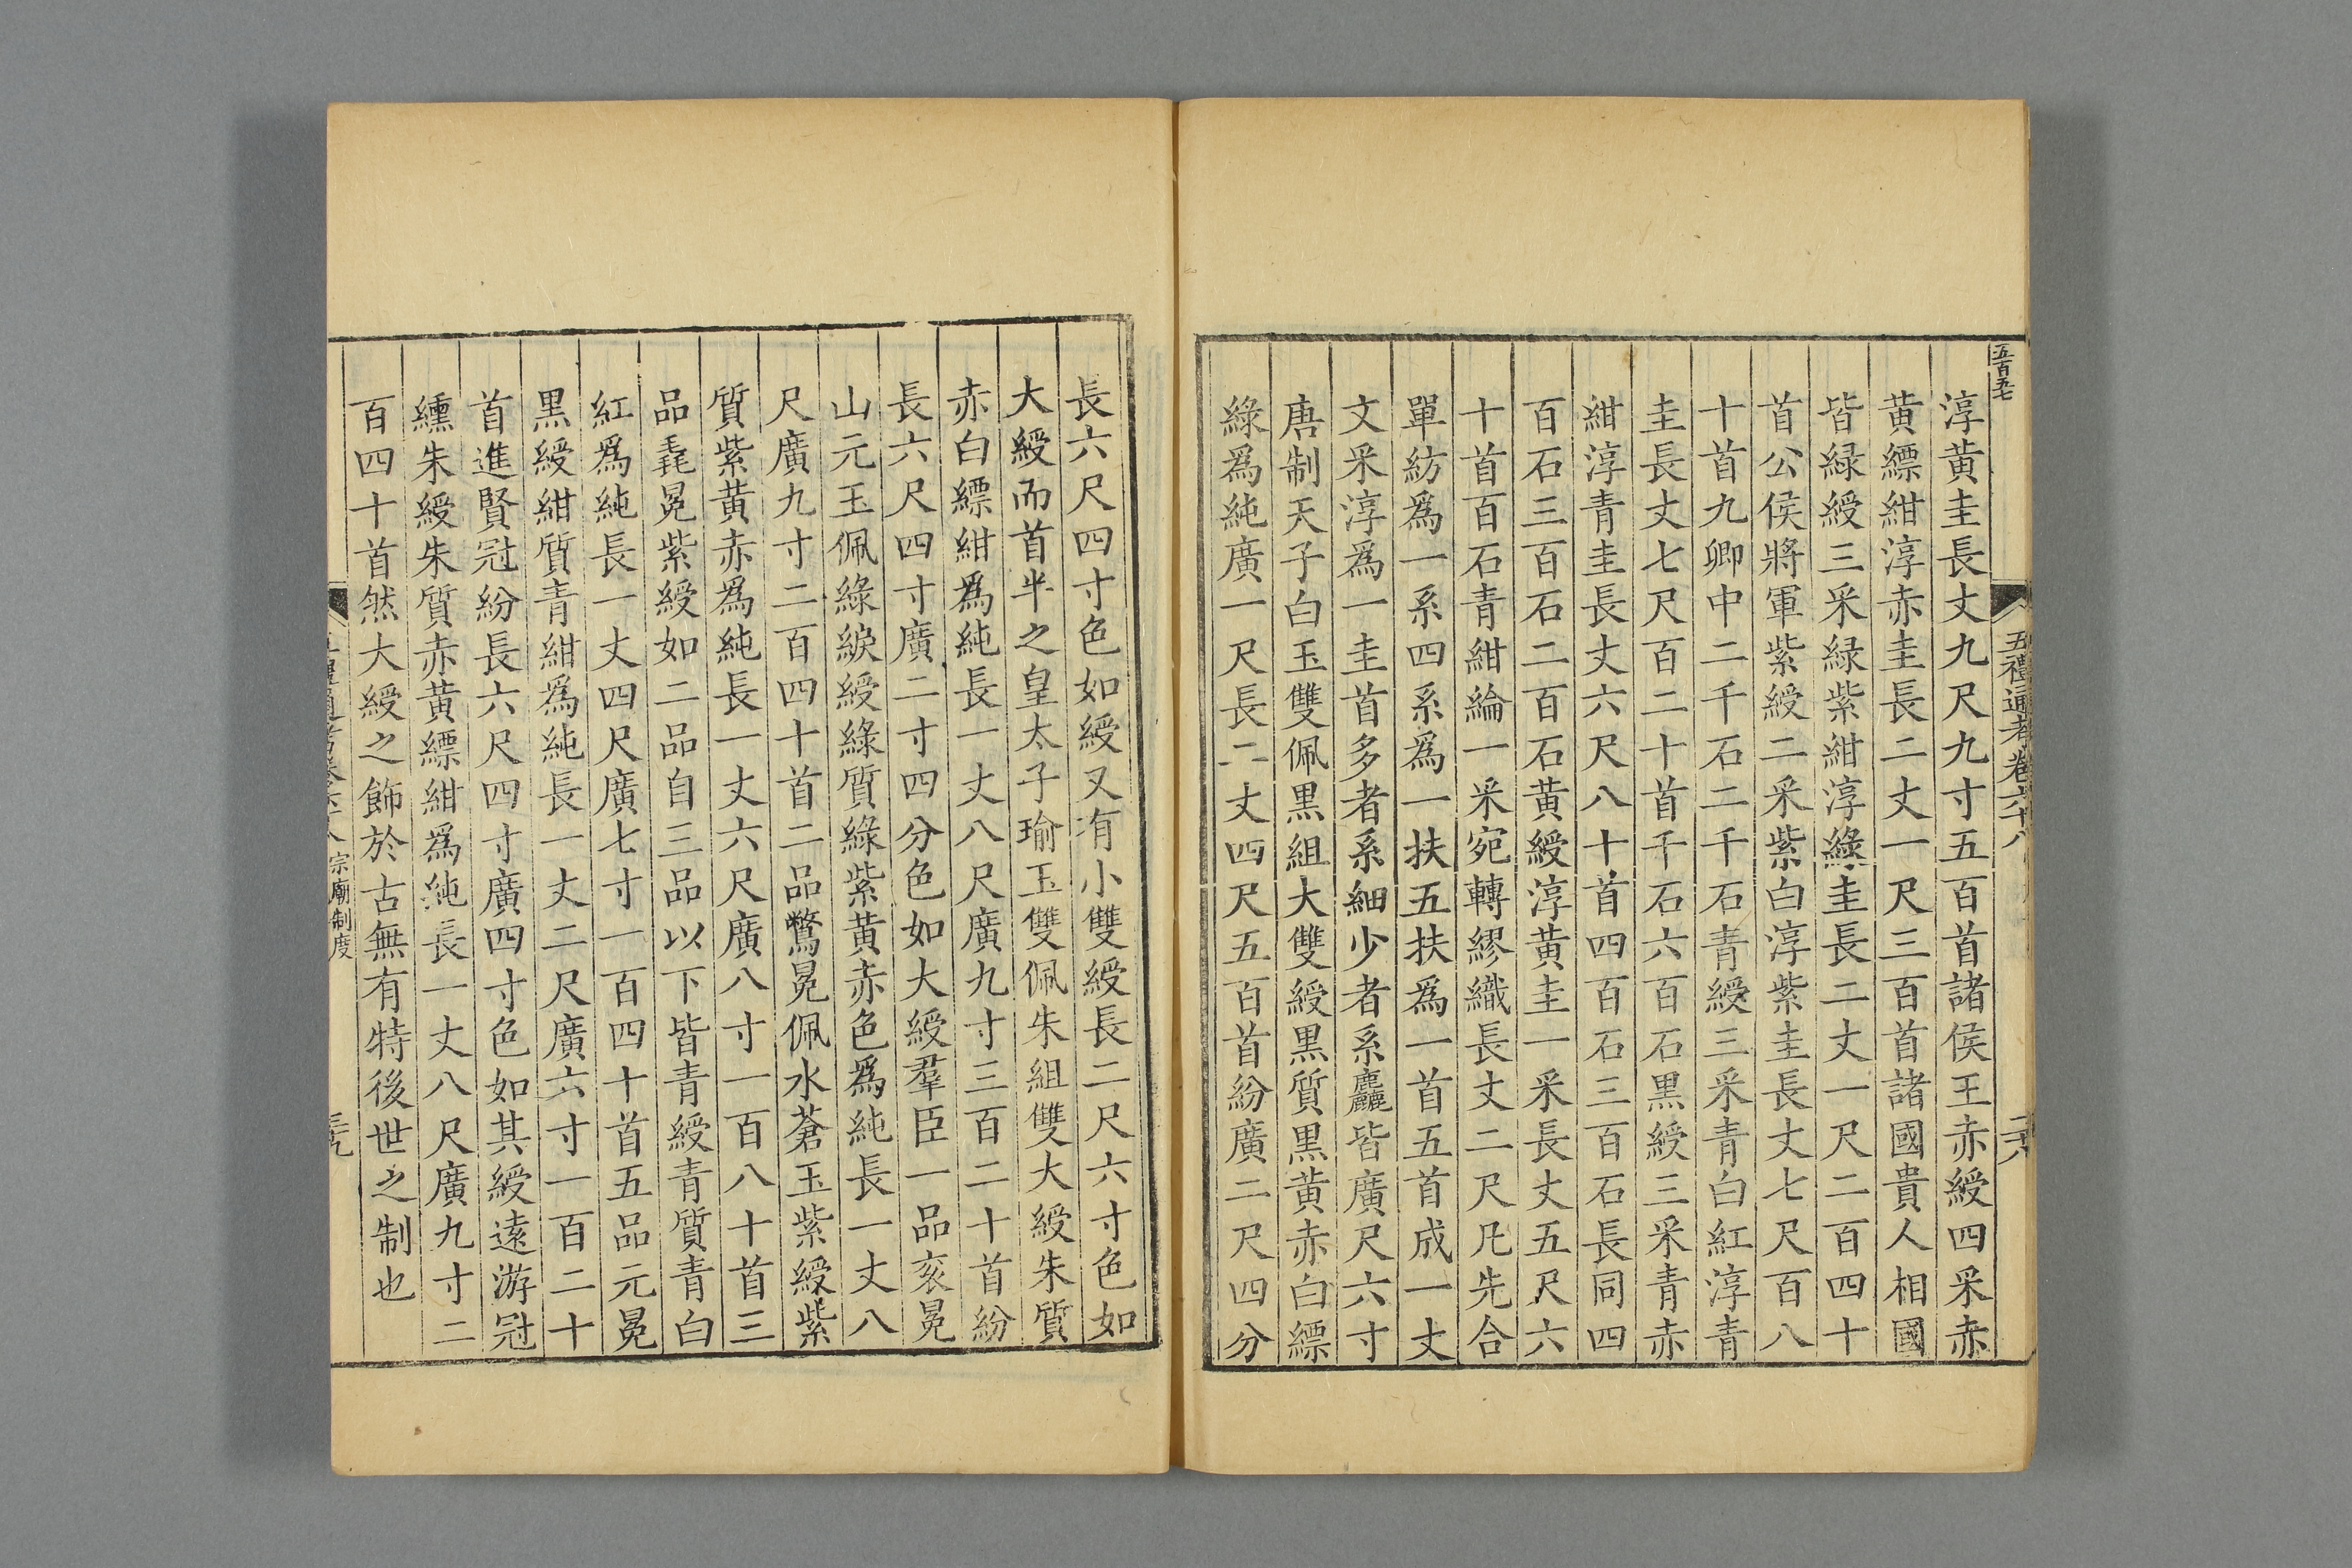 五百五七
五禮通考卷六十八
淳黃圭長丈九尺九寸五百首諸侯王赤綬四采赤
黃縹紺淳赤圭長二丈一尺三百首諸國貴人相國
皆緑綬三采緑紫紺淳綠圭長二丈一尺二百四十
首公侯將軍紫綬二采紫白淳紫圭長丈七尺百八
十首九卿中二千石二千石青綬三采青白紅淳青
圭長丈七尺百二十首千石六百石黑綬三采青赤
紺淳青圭長丈六尺八十首四百石三百石長同四
百石三百石二百石黃綬淳黃圭一采長丈五尺六
十首百石青紺綸一采宛轉繆織長丈二尺凡先合
單紡爲一系四系爲一扶五扶爲一首五首成一丈
文采淳爲一圭首多者系細少者系麤皆廣尺六寸
唐制天子白玉雙佩黑組大雙綬黑質黑黃赤白縹
綠爲純廣一尺長二丈四尺五百首紛廣二尺四分
長六尺四寸色如綬又有小雙綬長二尺六寸色如
大綬而首半之皇太子瑜玉雙佩朱組雙大綬朱質
赤白縹紺爲純長一丈八尺廣九寸三百二十首紛
長六尺四寸廣二寸四分色如大綬羣臣一品衮冕
山元玉佩綠綟綬綠質綠紫黃赤色爲純長一丈八
尺廣九寸二百四十首二品鷩冕佩水蒼玉紫綬紫
質紫黃赤爲純長一丈六尺廣八寸一百八十首三
品毳冕紫綬如二品自三品以下皆青綬青質青白
紅爲純長一丈四尺廣七寸一百四十首五品元冕
黑綬紺質青紺爲純長一丈二尺廣六寸一百二十
首進賢冠紛長六尺四寸廣四寸色如其綬遠游冠
纁朱綬朱質赤黃縹紺爲純長一丈八尺廣九寸二
百四十首然大綬之飾於古無有特後世之制也
宗廟制度